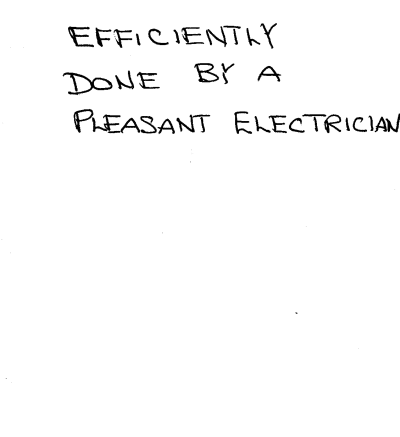 EFFICIENTLY
DONE BY A
PLEASANT ELECTRICIAN